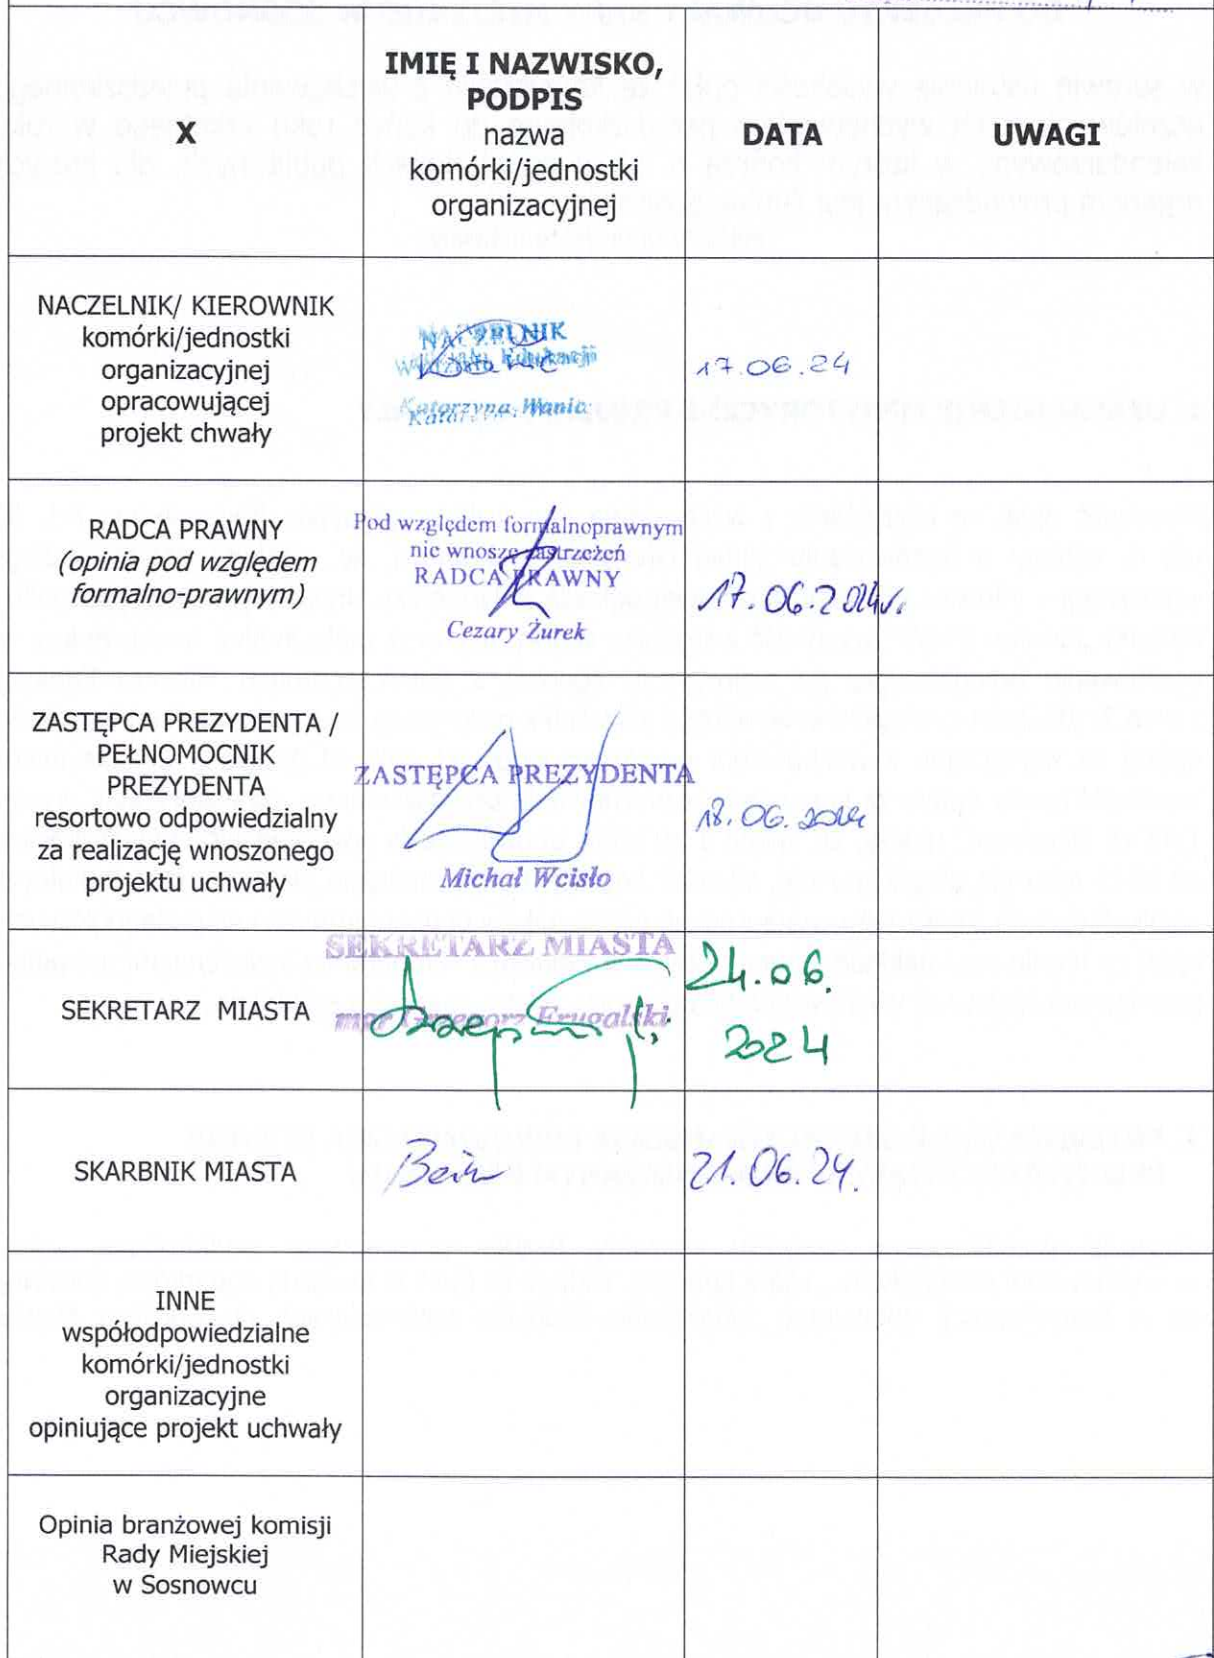 X
IMIĘ I NAZWISKO,
PODPIS
nazwa
komórki/jednostki
organizacyjnej
DATA
UWAGI
NACZELNIK/ KIEROWNIK
komórki/jednostki
organizacyjnej
opracowującej
projekt chwały
NACZELNIK
Wydziału Edukacji
Katarzyna Wanic
17.06.24
RADCA PRAWNY
(opinia pod względem
formalno-prawnym)
Pod względem formalnoprawnym
nie wnoszę zastrzeżeń
RADCA PRAWNY
Cezary Żurek
17.06.2024r.
ZASTĘPCA PREZYDENTA /
PEŁNOMOCNIK
PREZYDENTA
resortowo odpowiedzialny
za realizację wnoszonego
projektu uchwały
ZASTĘPCA PREZYDENTA
Michał Wcisło
18.06.2024
SEKRETARZ MIASTA
SEKRETARZ MIASTA
mgr Grzegorz Frugalski
24.06.
2024
SKARBNIK MIASTA
21.06.24.
INNE
współodpowiedzialne
komórki/jednostki
organizacyjne
opiniujące projekt uchwały
Opinia branżowej komisji
Rady Miejskiej
w Sosnowcu